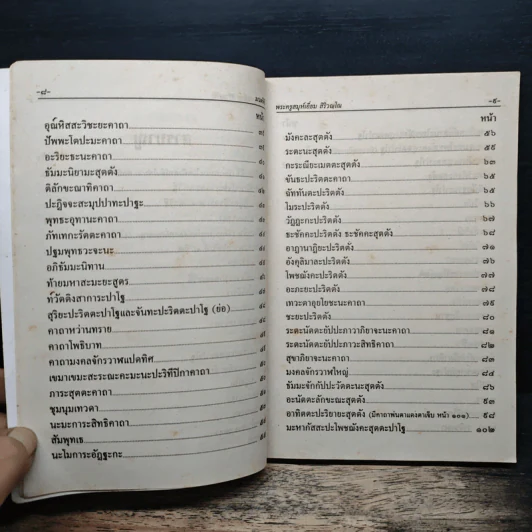 -๘-
หน้า
อุณ๎หิสสะวิชะยะคาถา
ปัพพะโตปะมะคาถา
อะริยะธะนะคาถา
ธัมมะนิยามะสุตตัง
ติลักขะณาทิคาถา
ปะฏิจจะสะมุปปาทะปาฐะ
พุทธะอุทานะคาถา
ภัทเทกะรัตตะคาถา
ปฐมพุทธวะจะนะ
อภิธัมมะนิทาน
ท้ายมหาสะมะยะสูตร
ท๎วัตติงสาการะปาโฐ
สุริยะปะริตตะปาโฐและจันทะปะริตตะปาโฐ (ย่อ)
คาถาหว่านทราย
คาถาโพธิบาท
คาถามงคลจักรวาฬแปดทิศ
เขมาเขมะสะระณะคะมะนะปะริทีปิกาคาถา
ภาระสุตตะคาถา
ชุมนุมเทวดา
นะมะการะสิทธิคาถา
สัมพุทเธ
นะโมการะอัฏฐะกะ
พระครูสมุห์เอี่ยม สิริวณฺโณ -๙-
หน้า
มังคะละสุตตัง ๕๖
ระตะนะสุตตัง ๕๙
กะระณียะเมตตะสุตตัง ๖๓
ขันธะปะริตตะคาถา ๖๕
ฉัททันตะปะริตตัง ๖๕
โมระปะริตตัง ๖๖
วัฏฏะกะปะริตตัง ๖๗
ธะชัคคะปะริตตัง ธะชัคคะสุตตัง ๖๘
อาฏานาฏิยะปะริตตัง ๗๑
อังคุลิมาละปะริตตัง ๗๖
โพชฌังคะปะริตตัง ๗๗
อะภะยะปะริตตัง ๗๘
เทวะตาอุยโยชะนะคาถา ๗๙
ชะยะปะริตตัง ๘๐
ระตะนัตตะยัปปะภาวาภิยาจะนะคาถา ๘๑
ระตะนัตตะยัปปะภาวะสิทธิคาถา ๘๒
สุขาภิยาจะนะคาถา ๘๓
มงคลจักรวาฬใหญ่ ๘๔
ธัมมะจักกัปปะวัตตะนะสุตตัง ๘๖
อะนัตตะลักขะณะสุตตัง ๙๓
อาทิตตะปะริยายะสุตตัง (มีคาถาพ่นตาแดงตาเจ็บ หน้า ๑๐๑) ๙๘
มะหากัสสะปะโพชฌังคะสุตตะปาโฐ ๑๐๒